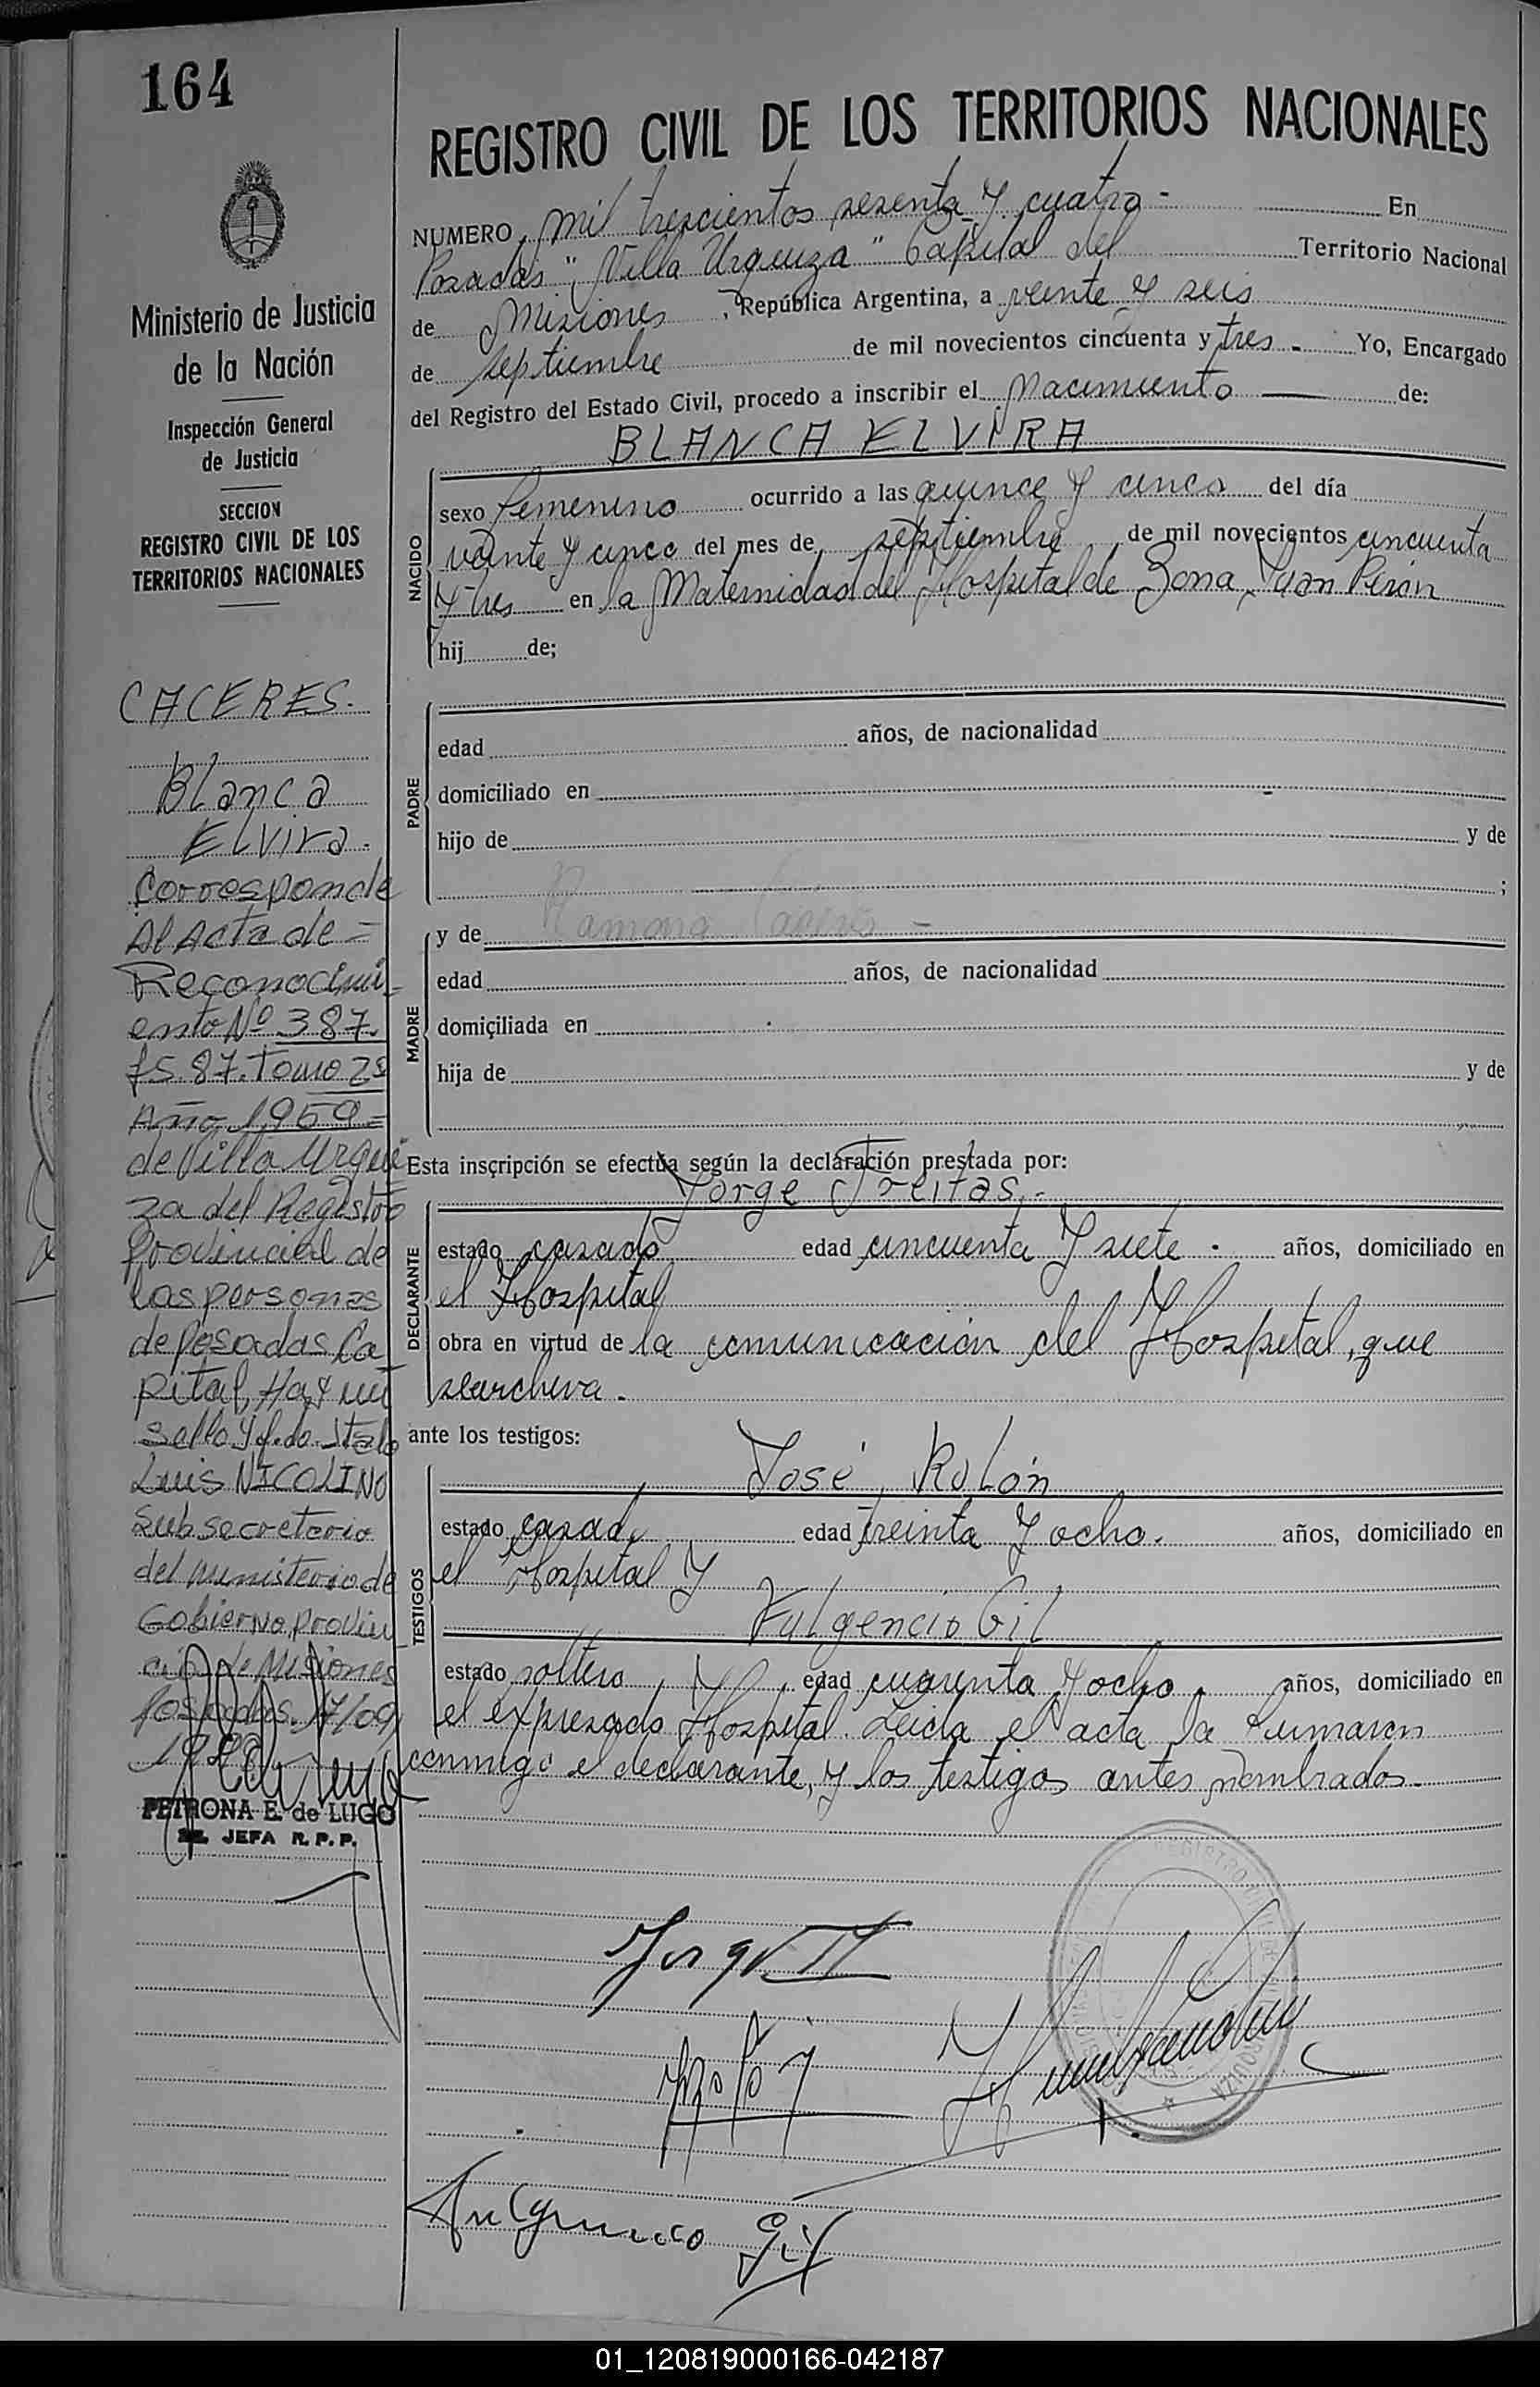 164
REGISTRO CIVIL DE LOS TERRITORIOS NACIONALES
NUMERO mil trescientos sesenta y cuatro - En
Posadas "Villa Urquiza" Capital del Territorio Nacional
de Misiones, República Argentina, a veinte y seis
de septiembre de mil novecientos cincuenta y tres - Yo, Encargado
del Registro del Estado Civil, procedo a inscribir el Nacimiento de:
BLANCA ELVIRA
NACIDO
sexo femenino ocurrido a las quince y cinco del día
veinte y cinco del mes de septiembre de mil novecientos cincuenta
y tres en la Maternidad del Hospital de Zona, Juan Perón
hij de;
PADRE
edad años, de nacionalidad
domiciliado en
hijo de y de
;
MADRE
y de Ramona Caceres -
edad años, de nacionalidad
domiciliada en
hija de y de
Esta inscripción se efectúa según la declaración prestada por:
Jorge Freitas.-
DECLARANTE
estado casado edad cincuenta y siete - años, domiciliado en
el Hospital
obra en virtud de la comunicación del Hospital, que
searchiva.
ante los testigos:
José Rolón
TESTIGOS
estado casado edad treinta y ocho. años, domiciliado en
el Hospital y
Fulgencio Gil
estado soltero, edad cuarenta y ocho, años, domiciliado en
el expresado Hospital. Leida el acta la firmaron
conmigo el declarante, y los testigos antes nombrados.
Fulgencio Gil
REGISTRO
Ministerio de Justicia
de la Nación
Inspección General
de Justicia
SECCION
REGISTRO CIVIL DE LOS
TERRITORIOS NACIONALES
CACERES.
Blanca
Elvira.
Corresponde
Al Acta de =
Reconocimi-
ento Nº 387.
fs. 87. Tomo 2º
Año 1959 =
de Villa Urqui
za del Registro
Provincial de
las personas
de Posadas Ca
pital, Hay un
sello y fdo. Italo
Luis NICOLINO
Subsecretario
del Ministerio de
Gobierno, Provin
cia de Misiones
Posadas, 17/09/
PETRONA E. de LUGO
JEFA R. P. P.
01_120819000166-042187